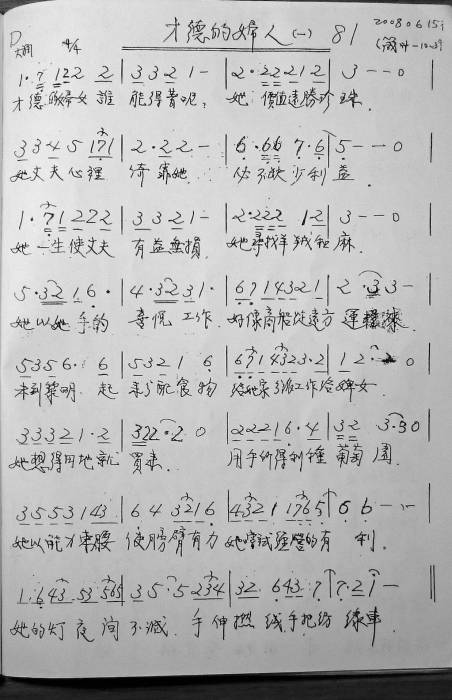 才德的婦人(一) 81 20080615
D 4/4
1· 7 1 2 2 2 | 3 3 2 1 - | 2· 2 2 2 1 2 | 3 - - 0 |
才德的婦女誰 能得着呢, 她價值遠勝珍珠.
3 3 4 5 1 7 1 | 2· 2 2 - | 6· 6 6 7· 6 | 5 - - 0 |
她丈夫心裡 倚靠她. 必不缺少利益
1· 7 1 2 2 2 | 3 3 2 1 - | 2· 2 2 2 1 2 | 3 - - 0 |
她一生使丈夫 有益無損 她尋找羊絨和麻.
5· 3 2 1 6· | 4· 3 2 3 1· | 6 7 1 4 3 2 1 | 2· 3 3 - |
她以她手的 工作. 好像商船從遠方 運糧來
5 3 5 6· 6 | 5 3 2 1 6 | 6 7 1 4 3 2 3· 2 | 1 2· 0 |
未到黎明 起 來分配食物 給她家 分派工作給婢女
3 3 3 2 1· 2 | 3 2 2· 2 0 | 2 2 2 1 6· 4 | 3 2 3· 3 0 |
她想得田地就 買來. 用手所得利種 葡萄園.
3 5 5 3 1 4 3 | 6 4 3 2 1 6 | 4 3 2 1 1 7 6 5 | 6 6 - - |
她以能力束腰 使膀臂有力 她嘗試經營的有 利.
1· 6 4 3 5 3 5 6 5 | 3 5· 5 2 3 4 | 3 2 6 4 3· 7 | 7· 2 1 - ||
她的灯夜間 不滅. 手伸撚线手把紡 線車.